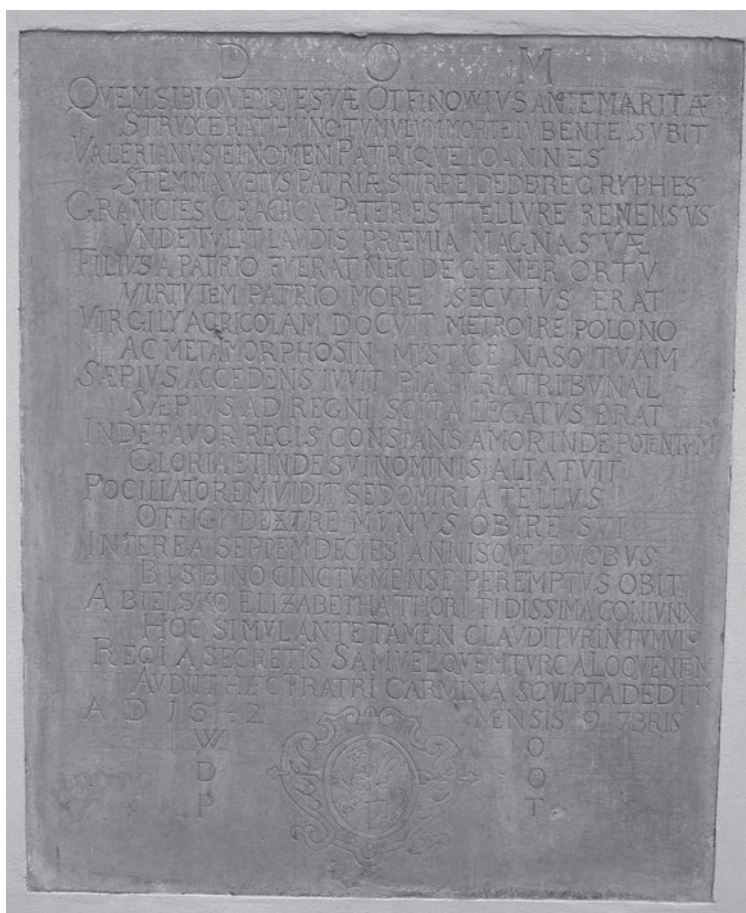 D O M
QVEM SIBI QVEMQVE SVÆ OTFINOWIVS ANTE MARITÆ
STRVXERAT HVNC TVMVLVM MORTE IVBENTE SVBIT
VALERIANVS EI NOMEN PATRIQVE IOANNES
STEMMA VETVS PATRIÆ STIRPE DEDERE GRYPHES
GRANICIES GRACICA PATER EST TELLVRE REMENSVS
VNDE TVLIT LAVDIS PRÆMIA MAGNA SVÆ
FILIVS A PATRIO FVERAT NEC DEGENER ORTV
VIRTVTEM PATRIO MORE SECVTVS ERAT
VIRGILY AGRICOLAM DOCVIT METRO IRE POLONO
AC METAMORPHOSIN MYSTICE NASO TVAM
SÆPIVS ACCEDENS IVVIT PIA IVRA TRIBVNAL
SÆPIVS AD REGNI SCITA LEGATVS ERAT
INDE FAVOR REGIS CONSTANS AMOR INDE POTENTVM
GLORIA ET INDE SVI NOMINIS ALTA FVIT
POCILLATOREM VIDIT SEDOMIRIA TELLVS
OFFICY DEXTRE MVNVS OBIRE SVI
INTEREA SEPTEM DECIES ANNISQVE DVOBVS
BIS BINO CINCTV MENSE PEREMPTVS OBIT
A BIELSKO ELIZABETHA THORI FIDISSIMA CONIVNX
HOC SIMVL ANTE TAMEN CLAVDITVR IN TVMVLO
REGI A SECRETIS SAMVEL QVEM TVRCA LOQVENTEM
AVDIIT HÆC FRATRI CARMINA SCVLPTA DEDIT
A D 1642 MENSIS 9 7BRIS
W O
D O
P T